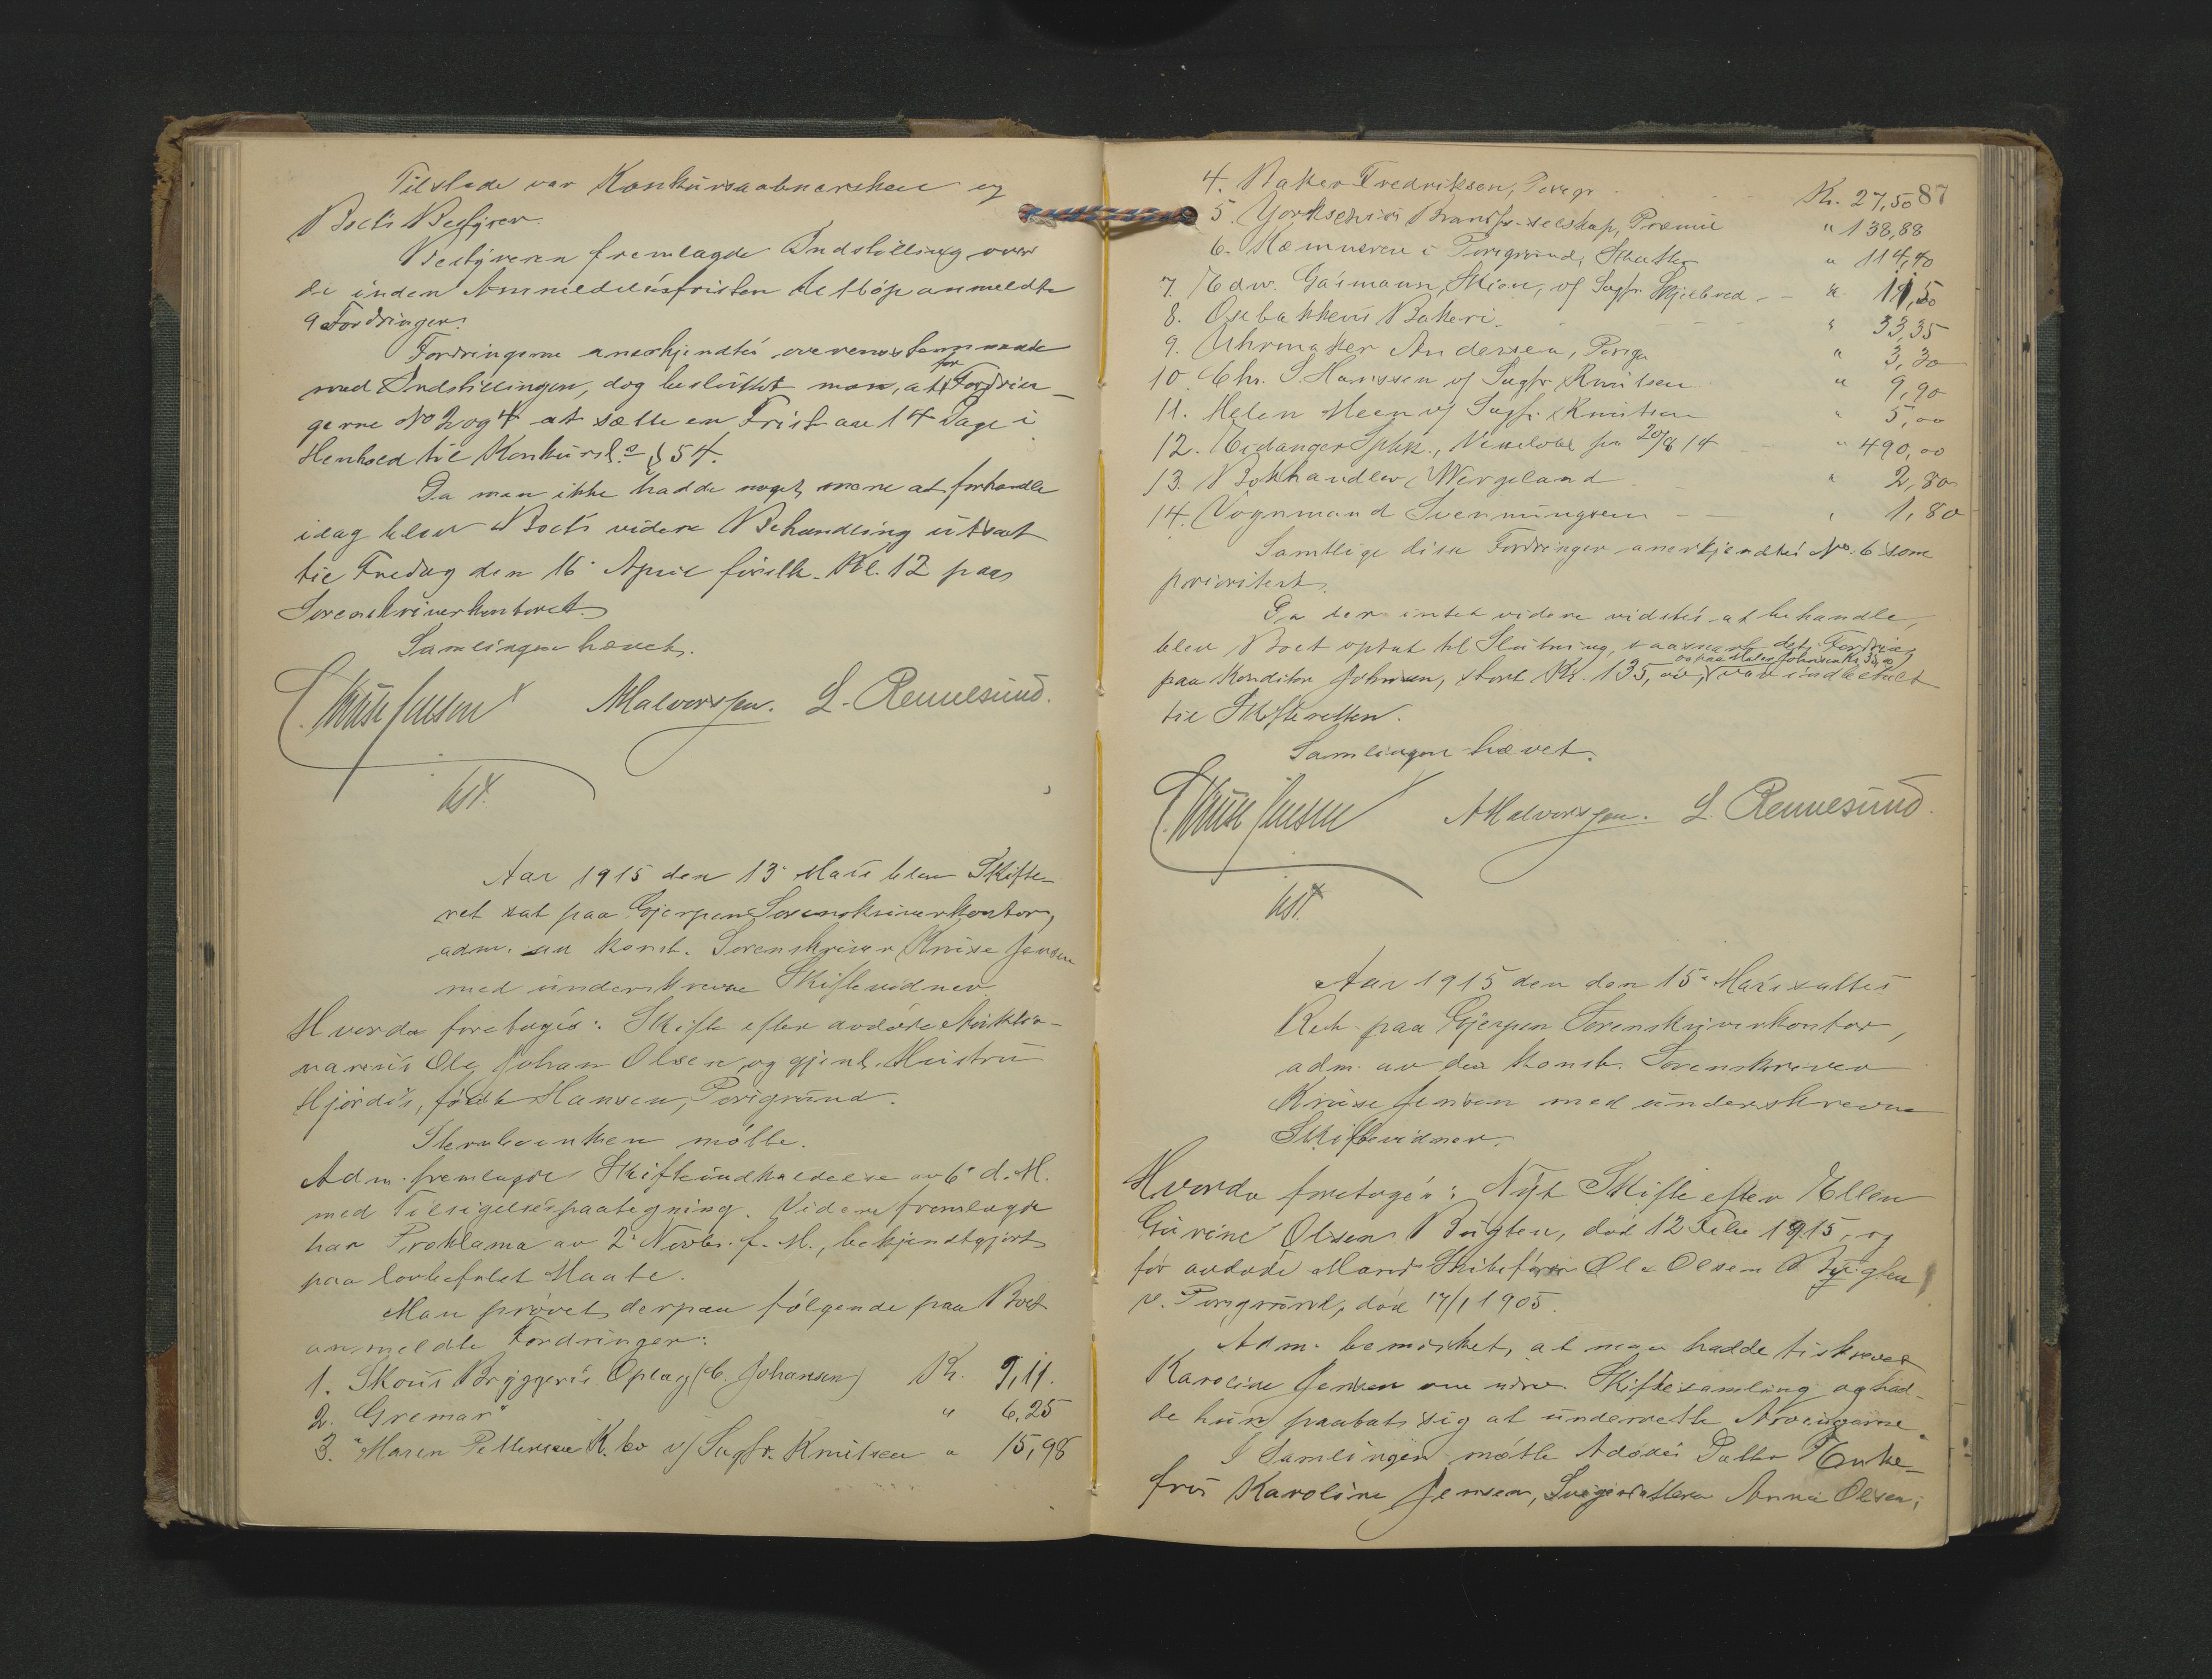 Tilstede var Konkursaabnerskeen og
Boets Bestyrer.
Bestyreren fremlagde Indstilling over
de inden Anmeldelsesfristen Utløp anmeldte
9 Fordringer.
Fordringerne anerkjendtes overensstemmende
med Indstillingen, dog besluttet man, at for Fordrin-
gerne No 2 og 4 at sætte en Frist av 14 Dage i
Henhold til Konkursl.s § 54.
Da man ikke hadde noget mere at forhandle
idag blev Boets videre Behandling utsat
til Fredag den 16' April førstk. Kl. 12 paa
Sorenskriverkontoret.
Samlingen hævet.
Kruse Jensen AHalvorsen. L. Rennesund.
kst.
Aar 1915 den 13' Mars blev Skifte-
ret sat paa Gjerpen Sorenskriverkontor,
adm. av konst. Sorenskriver Kruse Jensen
med underskrevne Skiftevidner
Hvorda foretoges: Skifte efter avdøde
Ole Johan Olsen og gjenl. Hustru
Hjørdis, født Hansen, Porsgrund.
Sterkeenken møtte.
Adm. fremlagde Skifteindkaldelse av 6' d. M.
med Tilsigelsespaategning. Videre fremlagde
han Proklama av 2' Novbr. f. A., bekjendtgjort
paa lovbefalet Maate.
Man prøvet derpaa følgende paa Boet
anmeldte Fordringer:
1. Skous Bryggeris Oplag (C. Johansen) Kr. 9,11.
2. "Gremar" " 6,25
3. Maren Pettersen K. bo v/ Sagfr. Knutsen " 15,98
87
4. Baker Fredriksen, Porsgr. Kr. 27,50
5. Yorkschires Brandfr.-selskap, Præmie " 138,88
6. Kæmneren i Porsgrund, Skatter " 114,40
7. Edw. Gaimann, Skien, v/ Sagfr. Skjelbred - " 11,50
8. Osebakkens Bakeri. " 33,35
9. Uhrmaker Andersen, Porsgr " 3,30
10. Chr. S. Hanssen v/ Sagfr. Knutsen " 9,90
11. Helen Meen v/ Sagfr. Knutsen " 5,00
12. Eidanger Spbk., Vekselobl. fra 20/8 14 " 490,00
13. Bokhandler Wergeland " 2,80
14. Vognmand Svenningsen " 1,80
Samtlige disse Fordringer anerkjendtes No. 6 som
prioritert.
Da der intet videre vidstes at behandle,
blev Boet optat til Slutning, saasnart dets Fordring
og paa Johnsen Kr. 35,00
paa Konditor Johnsen, stort Kr. 135,00, var indbetalt
til Skifteretten.
Samlingen hævet.
Kruse Jensen AHalvorsen. L. Rennesund.
kst.
Aar 1915 den den 15' Mars sattes
Ret paa Gjerpen Sorenskriverkontor,
adm. av den konst. Sorenskriver
Kruse Jensen med underskrevne
Skiftevidner.
Hvorda foretoges: Nyt Skifte efter Ellen
Gurine Olsen Bugten, død 12 Febr 1915, og
før avdøde Mand Skibsfører Ole Olsen Bugten
v. Porsgrund, død 17/1 1905.
Adm. bemærket, at man hadde tilskrevet
Karoline Jensen om nærv. Skiftesamling og had-
de hun paatat sig at underrette Arvingerne.
I Samlingen møtte Avdødes Datter Enke-
fru Karoline Jensen, Svigerdatteren Anna Olsen,